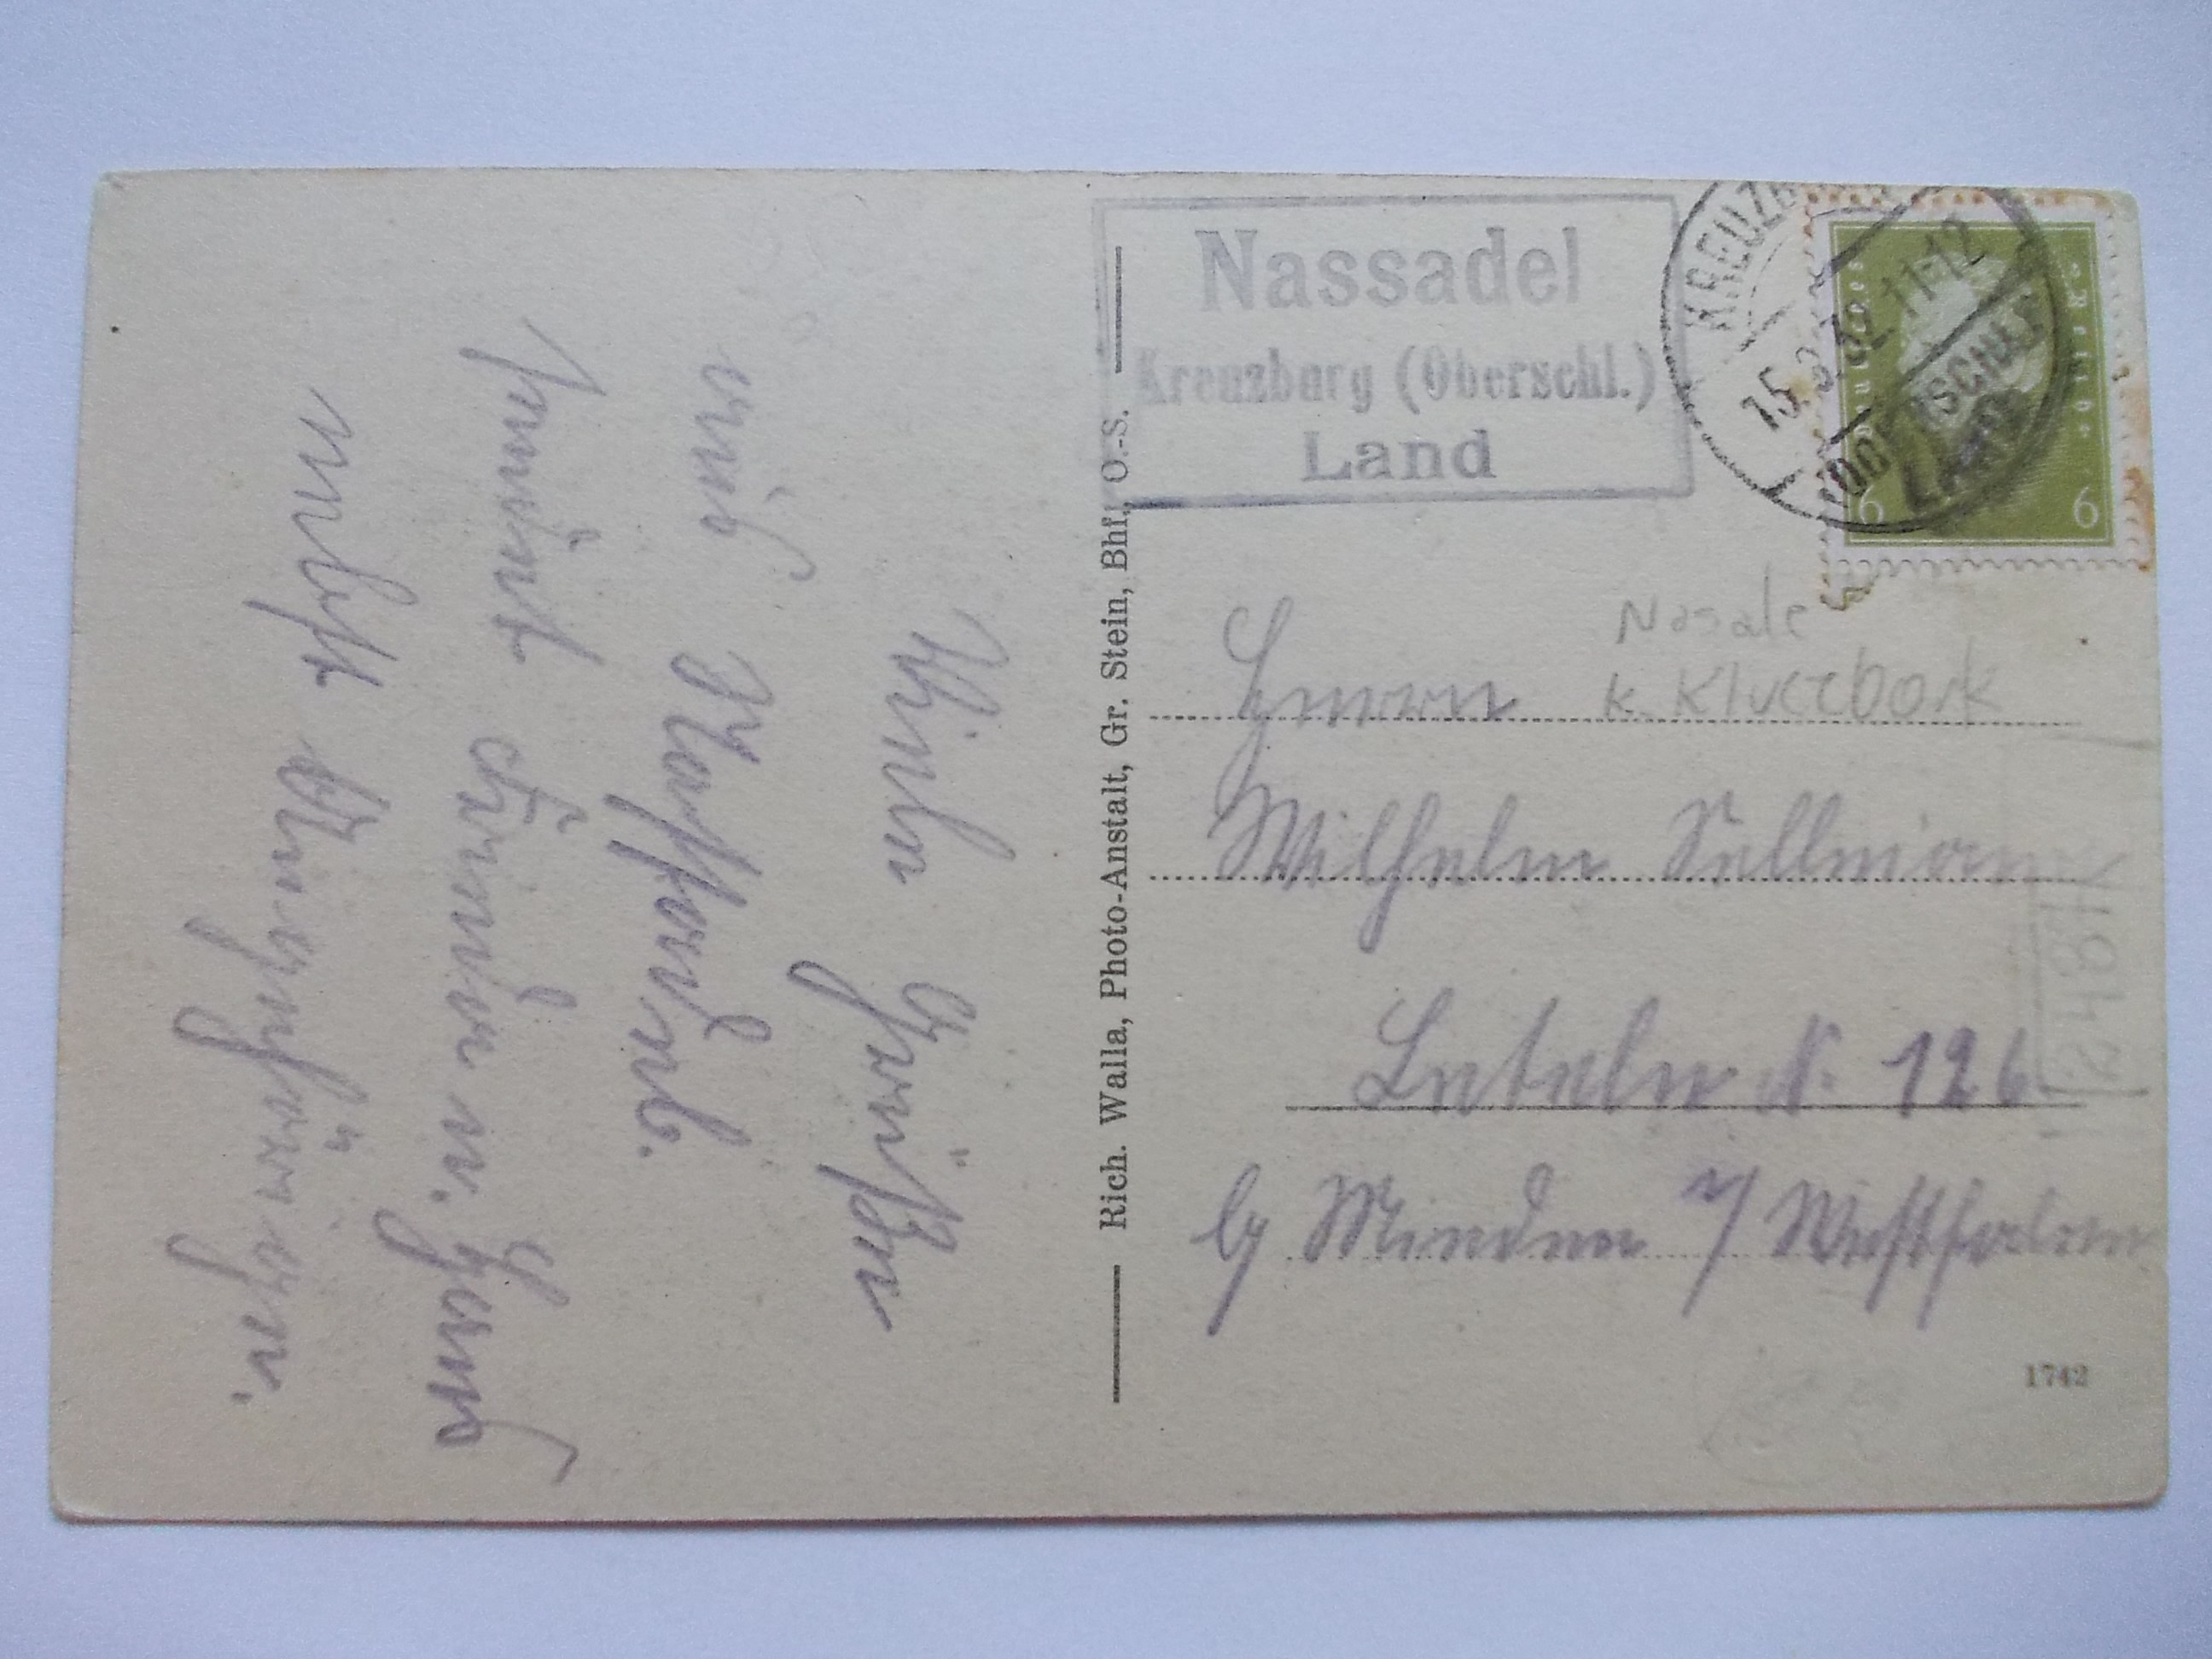 Viele Grüßen
aus Nassadel.
sendet Freunde u. Haus
nebst Angehörigen.
Rich. Walla, Photo-Anstalt, Gr. Stein, Bhf., O.-S.
Nassadel
Kreuzburg (Oberschl.)
Land
KREUZB
15.8.32.11-12
OBERSCHLES
LAND
Deutsches Reich
6 6
Nasale
k. Kluczbork
Herrn
Wilhelm Sellmann
Leteln N. 126
by Minden i/ Westfalen
1742